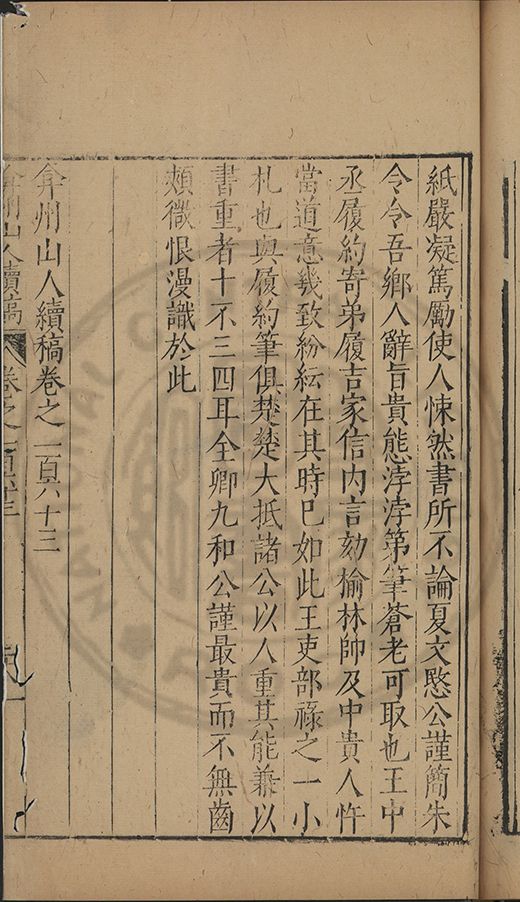 紙嚴凝篤勵使人悚然書所不論夏文愍公謹簡朱
令令吾鄉人辭旨貴態浡浡第筆蒼老可取也王中
丞履約寄弟履吉家信內言劾榆林帥及中貴人忤
當道意幾致紛紜在其時已如此王吏部祿之一小
札也與履約筆俱楚楚大抵諸公以人重其能兼以
書重者十不三四耳全卿九和公謹最貴而不無齒
頰微恨漫識於此
弇州山人續稿卷之一百六十三